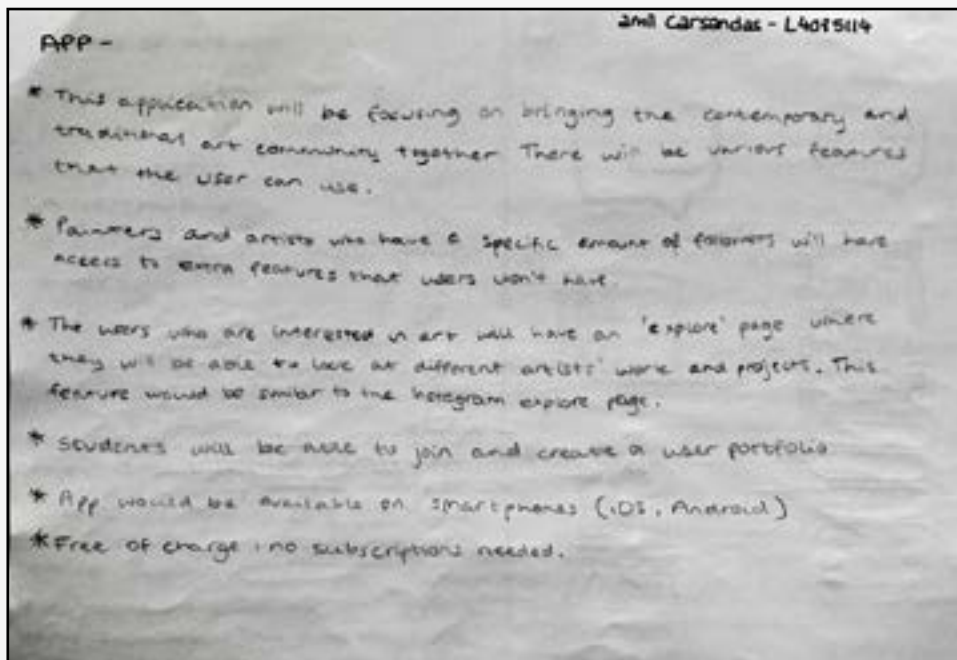 amil Carsandas - L4085114
APP -
* This application will be focusing on bringing the contemporary and
traditional art community together There will be various features
that the user can use.
* Painters and artists who have a specific amount of followers will have
access to extra features that users won't have.
* The users who are interested in art will have an 'explore' page where
they will be able to look at different artists' work and projects. This
feature would be similar to the Instagram explore page.
* Students will be able to join and create a user portfolio
* App would be available on smartphones (iOS, Android)
* Free of charge : no subscriptions needed.